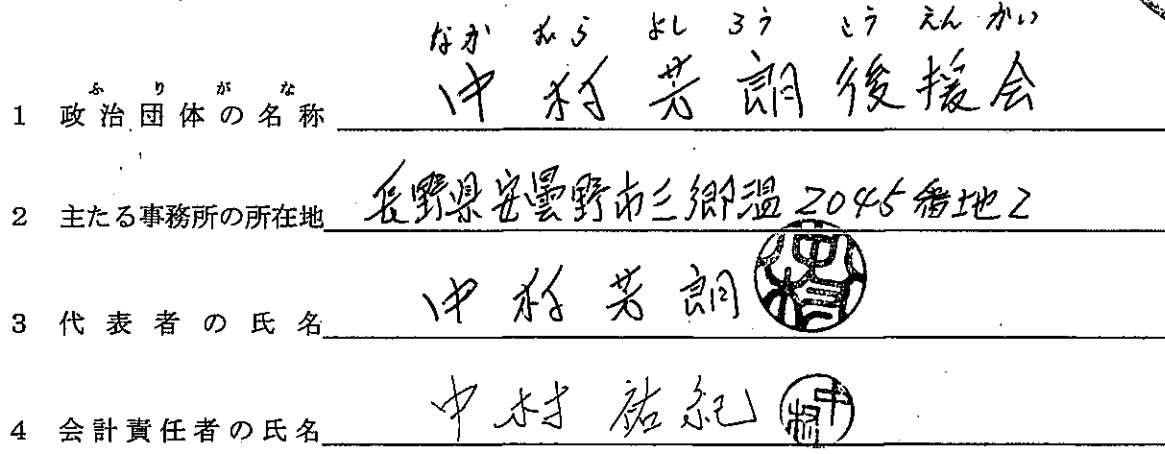 なかむらよしろうこうえんかい
ふりがな
1 政治団体の名称 中村芳朗後援会
2 主たる事務所の所在地 長野県安曇野市三郷温2045番地2
3 代表者の氏名 中村芳朗 中村
4 会計責任者の氏名 中村祐紀 中村